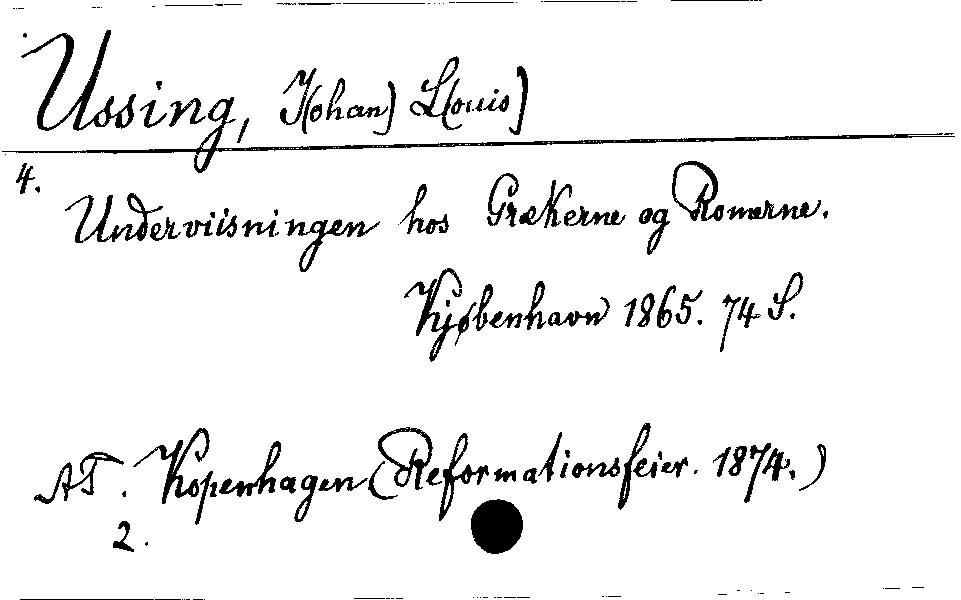 Ussing, J(ohan) L(ouis)
4.
Underviisningen hos Grækerne og Romerne.
Kjøbenhavn 1865. 74 S.
AT. Kopenhagen (Reformationsfeier. 1874.)
2.